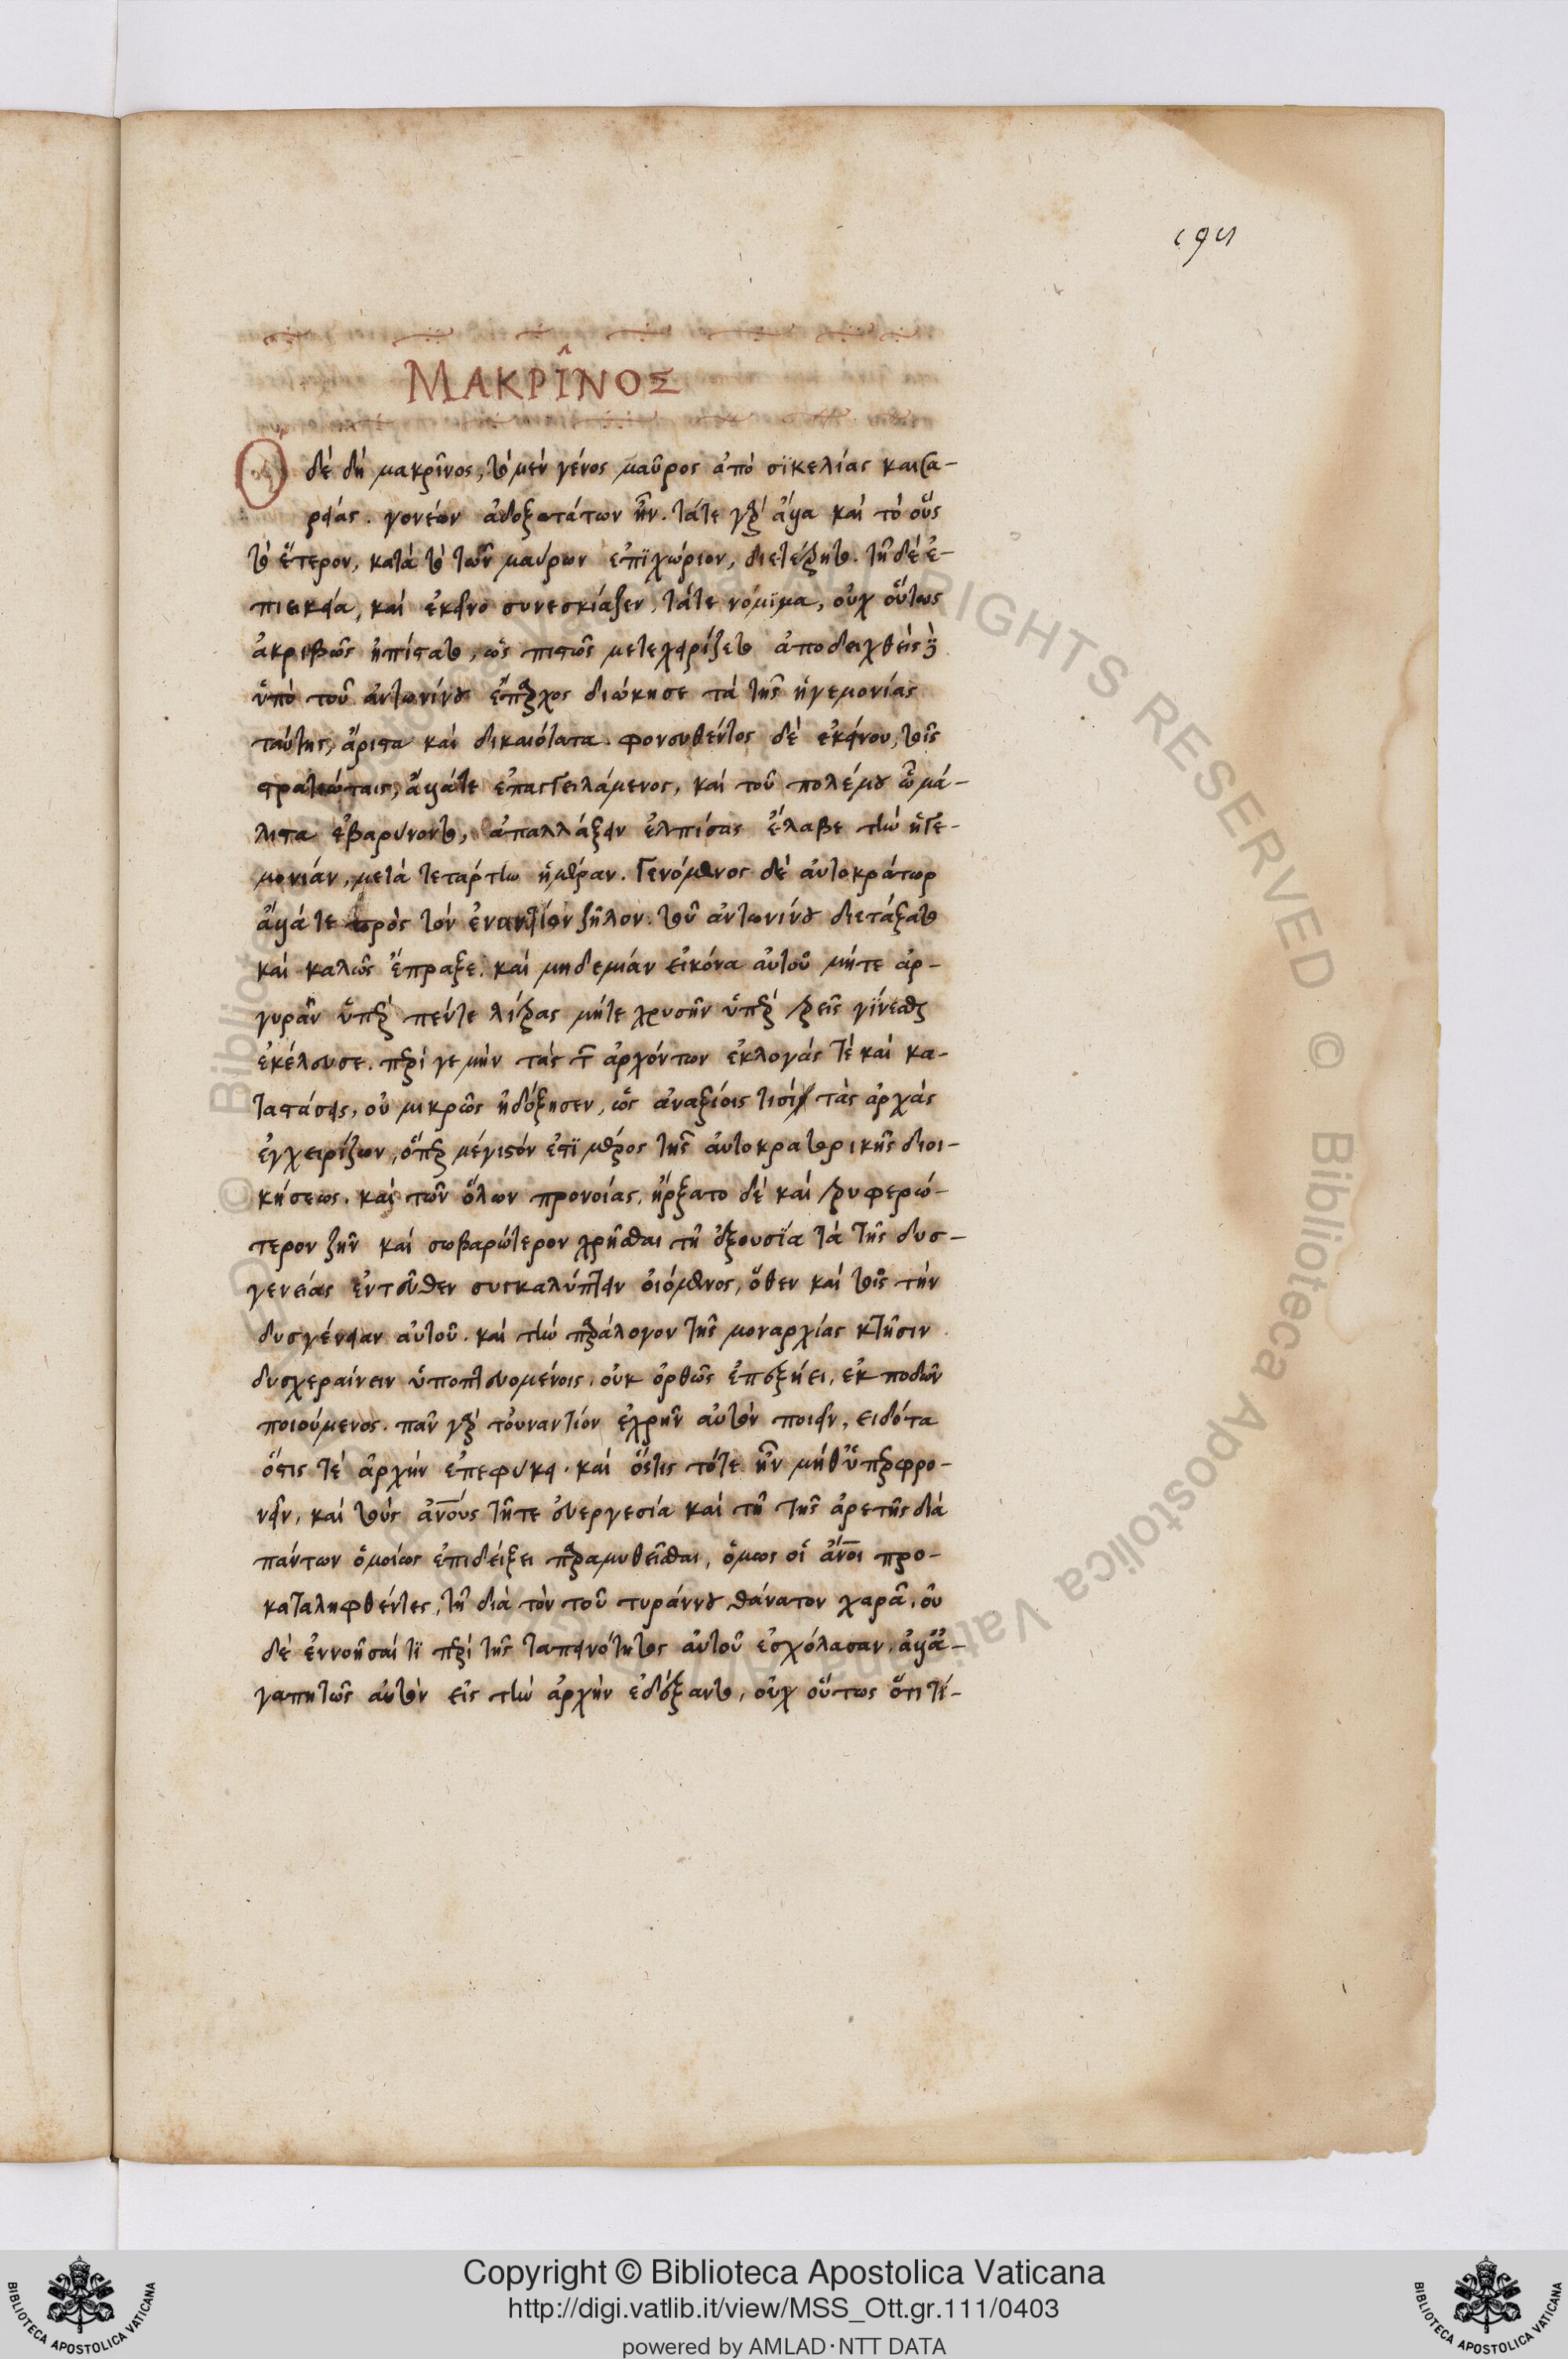 ΜΑΚΡΙ͂ΝΟΣ
Ὁ δὲ δὴ μακρῖνος, τὸ μὲν γένος μαῦρος ἀπὸ σϊκελίας καισα-
ρείας. γονέων ἀδοξοτάτων ἦν. τάτε γὰρ ἄλλα καὶ τὸ οὖς
τὸ ἕτερον, κατὰ τὸ τῶν μαύρων ἐπϊχώριον, διετέτρητο. τῇ δὲ ἐ-
πιεικεία, καὶ ἐκεῖνο συνεσκίαζεν, τάτε νόμϊμα, οὐχ οὕτως
ἀκριβῶς ἠπίστατο, ὡς πιστῶς μετεχειρίζετο ἀποδειχθεὶς
ὑπὸ τοῦ ἀντωνίνου ἔπαρχος διώκησε τὰ τῆς ἡγεμονίας
ταύτης, ἄριστα καὶ δικαιότατα. φονευθέντος δὲ ἐκείνου, τοῖς
στρατιώταις, ἄλλάτε ἐπαγγειλάμενος, καὶ τοῦ πολέμου ὧ μά-
λιστα ἐβαρύνοντο, ἀπαλλάξειν ἐλπίσας ἔλαβε τὴν ἡγε-
μονίαν, μετὰ τετάρτην ἡμέραν. Γενόμενος δὲ αὐτοκράτωρ
ἄλλά τε πρὸς τὸν ἐναντίον ζῆλον τοῦ ἀντωνίνου διετάξατο
καὶ καλῶς ἔπραξε. καὶ μηδεμίαν εἰκόνα αὐτοῦ μήτε ἀρ-
γυρᾶν ὑπὲρ πέντε λίτρας μήτε χρυσῆν ὑπὲρ τρεῖς γίνεσθαι
ἐκέλευσε. περί γε μὴν τὰς τῶν ἀρχόντων ἐκλογάς τὲ καὶ κα-
ταστάσεις, οὐ μικρῶς ἠδόξησεν, ὡς ἀναξίοις τισὶ τὰς ἀρχὰς
ἐγχειρίζων, ὅπερ μέγιστόν ἐστϊ μέρος τῆς αὐτοκρατορικῆς διοι-
κήσεως. καὶ τῶν ὅλων προνοίας, ἤρξατο δὲ καὶ τρυφερώ-
τερον ζῆν καὶ σοβαρώτερον χρῆσθαι τῇ ἐξουσΐα τὰ τῆς δυσ-
γενείας ἐντεῦθεν συσκαλύπτειν οἰόμενος, ὅθεν καὶ τοῖς τὴν
δυσγένειαν αὐτοῦ. καὶ τὴν παράλογον τῆς μοναρχίας κτῆσιν
δυσχεραίνειν ὑποπτευομένοις, οὐκ ὀρθῶς ἐπεξήει, ἐκ ποδῶν
ποιούμενος. πᾶν γὰρ τοὐναντίον ἐχρῆν αὐτὸν ποιεῖν, εἰδότα
ὅστις τὲ ἀρχὴν ἐπεφύκει. καὶ ὅστις τότε ἦν μήθ᾽ ὑπερφρο-
νεῖν, καὶ τοὺς ἀνο̅υς τῆτε εὐεργεσία καὶ τῇ τῆς ἀρετῆς διὰ
πάντων ὁμοίως ἐπιδείξει παραμυθεῖσθαι, ὅμως οἱ ἄνο̅ι προ-
καταληφθέντες, τῇ διὰ τὸν τοῦ τυράννου θάνατον χαρᾶ, οὐ
δὲ ἐννοῆσαί τϊ περὶ τῆς ταπεινότητος αὐτοῦ ἐσχόλασαν. ἀλλ᾽ ἀ-
γαπητῶς αὐτὸν εἰς τὴν ἀρχὴν ἐδέξαντο, οὐχ οὕτως ὅτι τί-
Copyright © Biblioteca Apostolica Vaticana
http://digi.vatlib.it/view/MSS_Ott.gr.111/0403
powered by AMLAD·NTT DATA